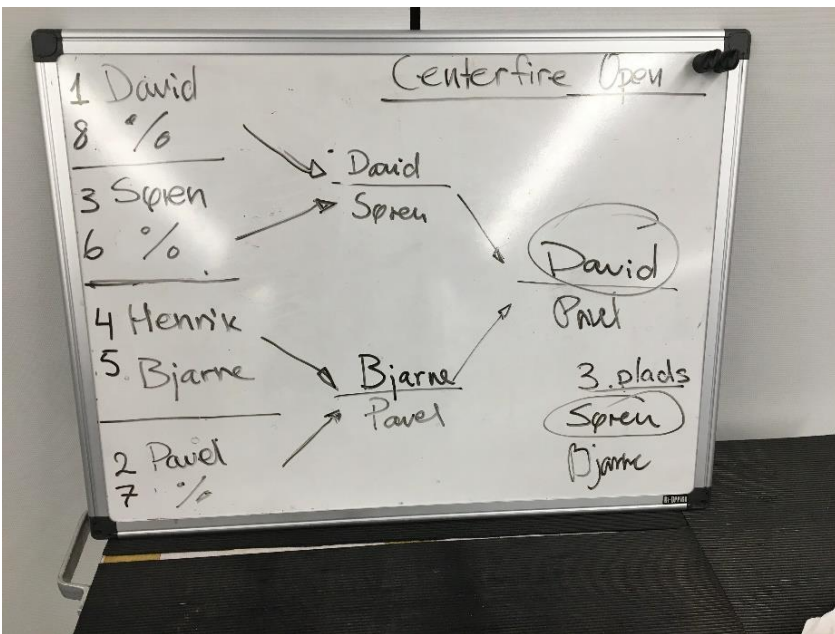 Centerfire Open
1 David
8 %
3 Søren
6 %
4 Henrik
5 Bjarne
2 Pavel
7 %
David
Søren
Bjarne
Pavel
David
Pavel
3. plads
Søren
Bjarne